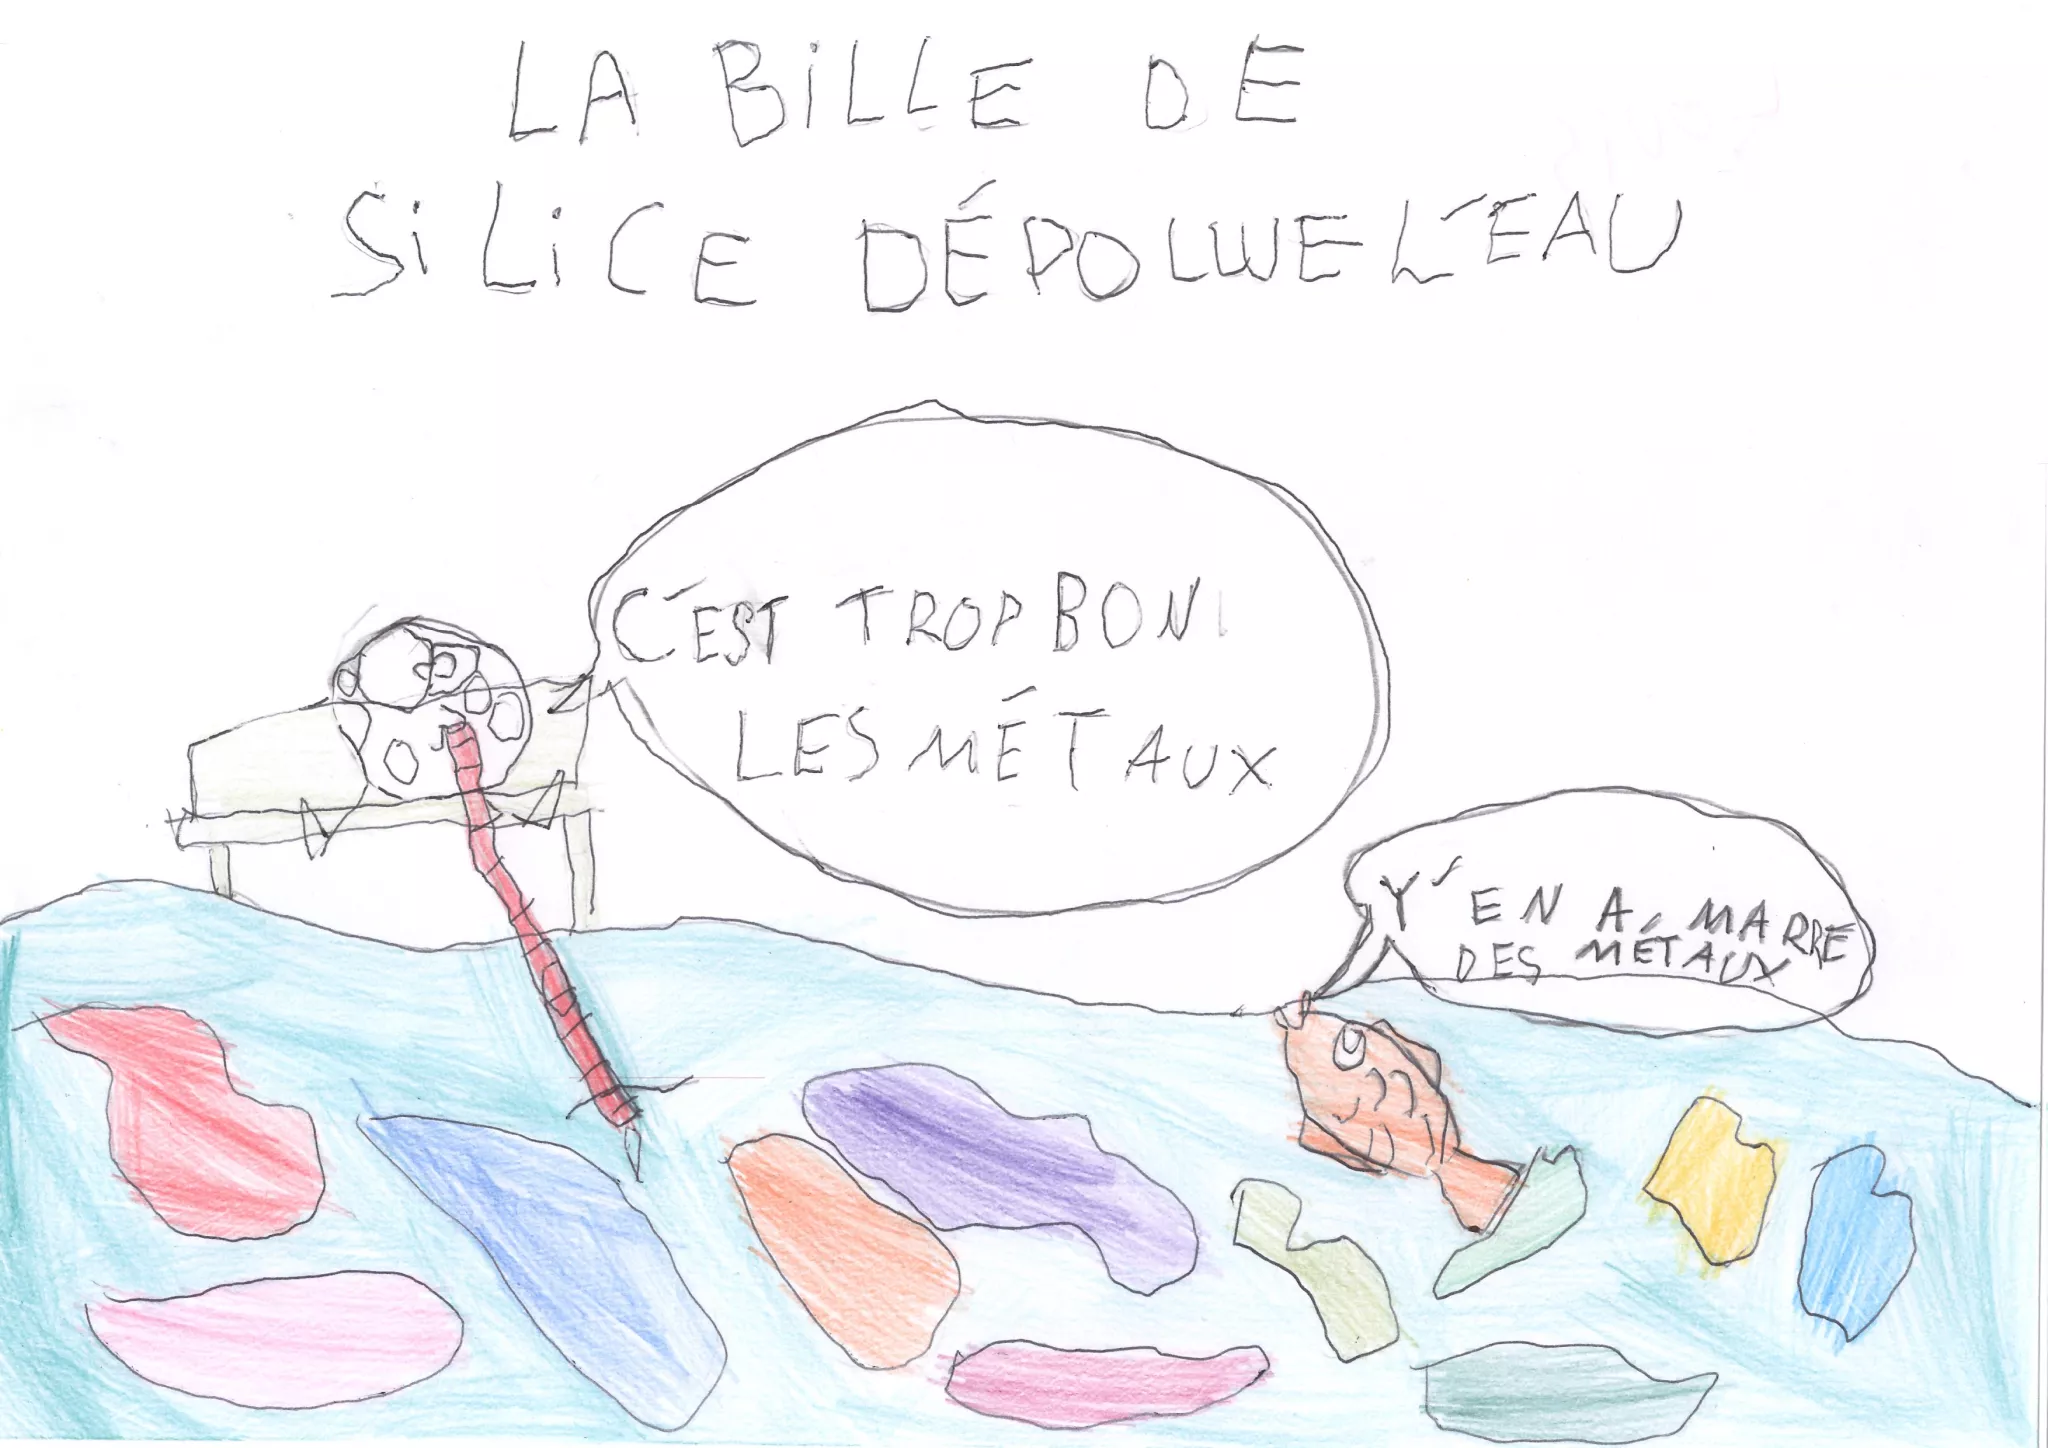 LA BiLLE DE
SiLiCE DÉPOLUUE L'EAU
C'EST TROP BON
LES MÉTAUX
Y'EN A MARRE
DES MÉTAUX